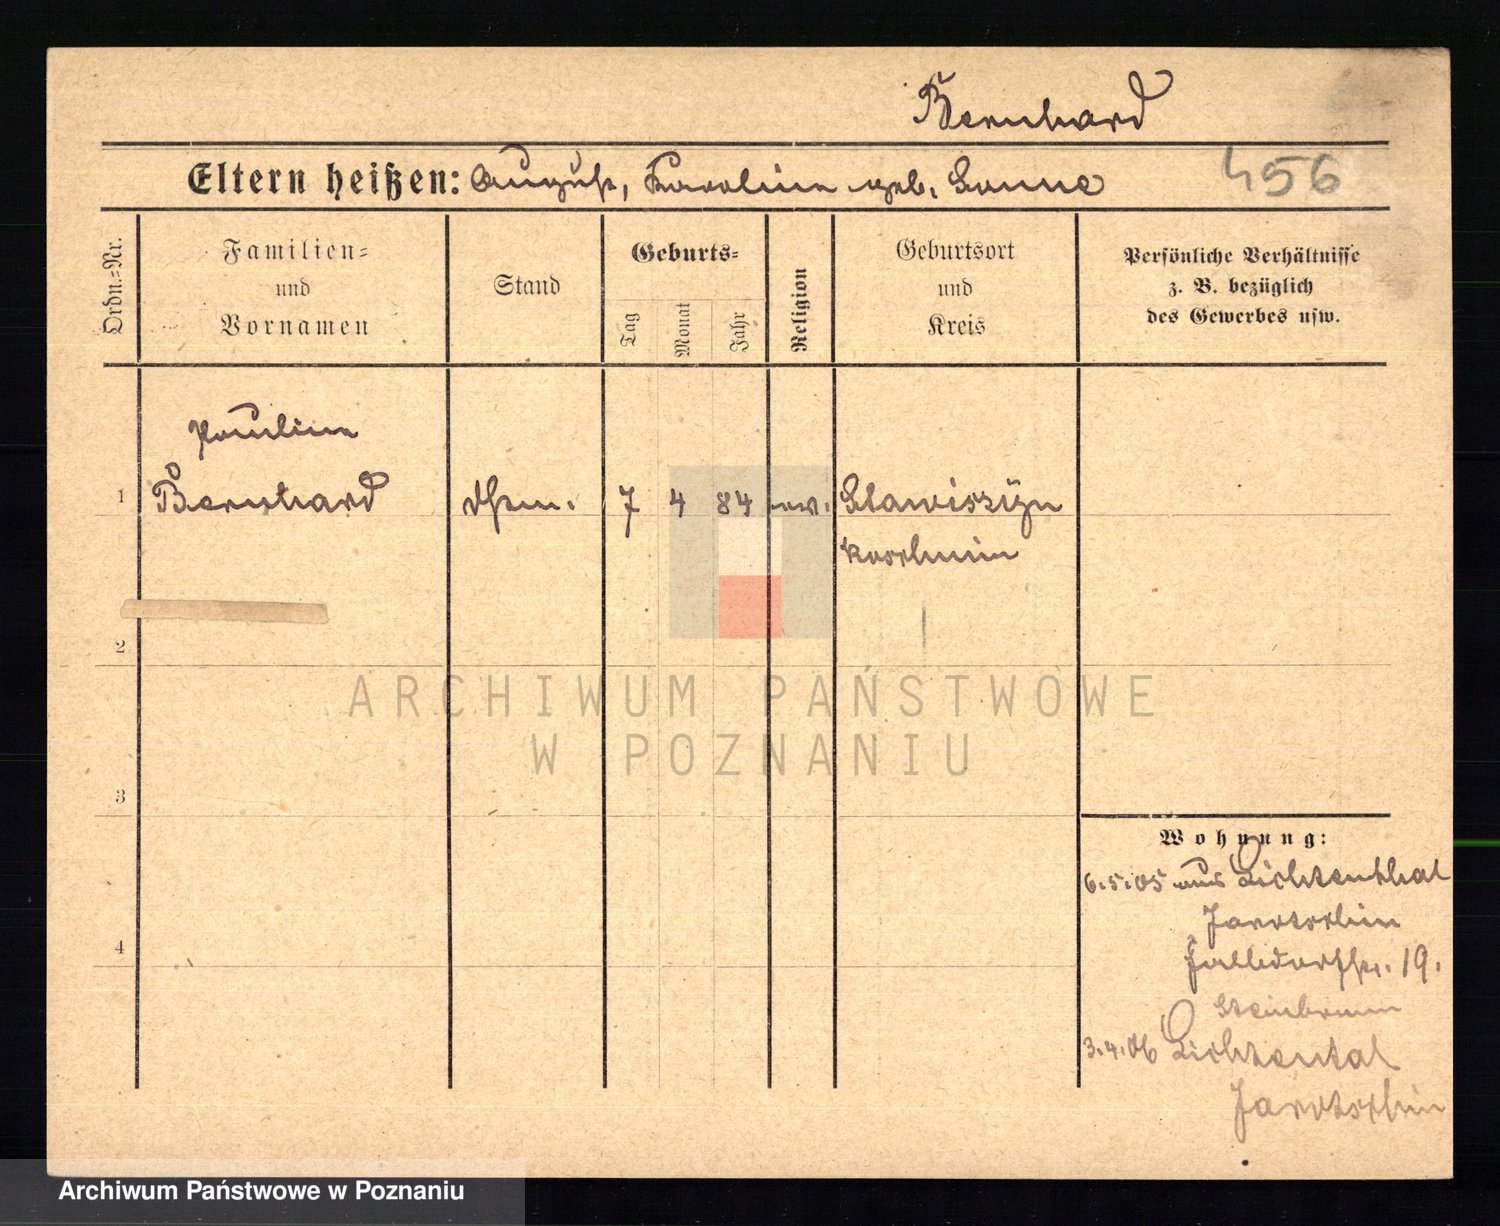 Bernhard
Eltern heißen: August, Karoline geb. Sonne
456
Ordn.=Nr.
Familien=
und
Vornamen
Stand
Geburts=
Tag
Monat
Jahr
Religion
Geburtsort
und
Kreis
Persönliche Verhältnisse
z. B. bezüglich
des Gewerbes usw.
Pauline
1 Bernhard 7 4 84 ev. Stawiszyn
Koschmin
2
ARCHIWUM PAŃSTWOWE
W POZNANIU
3
4
Wohnung:
6.5.05 aus Lichtenthal
Jarotschin
19.
Steinbrunn
3.4.06 Lichtental
Jarotschin
Archiwum Państwowe w Poznaniu